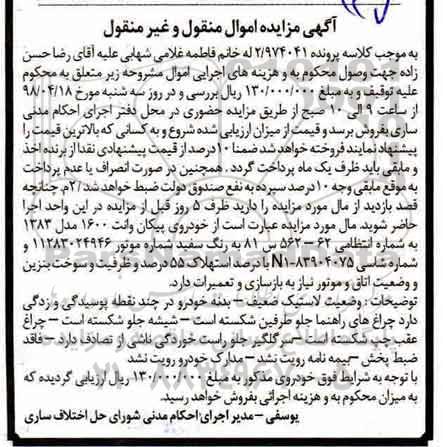 آگهی مزایده اموال منقول و غیر منقول
به موجب کلاسه پرونده ۲/۹۷۴۰۴۱ له خانم فاطمه غلامی شهابی علیه آقای رضا حسن
زاده جهت وصول محکوم به و هزینه های اجرایی اموال مشروحه زیر متعلق به محکوم
علیه توقیف و به مبلغ ۱۳۰/۰۰۰/۰۰۰ ریال بررسی و در روز سه شنبه مورخ ۹۸/۰۴/۱۸
از ساعت ۹ الی ۱۰ صبح از طریق مزایده حضوری در محل دفتر اجرای احکام مدنی
ساری بفروش برسد و قیمت از میزان ارزیابی شده شروع و به کسانی که بالاترین قیمت را
پیشنهاد نمایند فروخته خواهد شد ضمنا ۱۰ درصد از قیمت پیشنهادی نقدا از برنده اخذ
و مابقی باید ظرف یک ماه پرداخت گردد . همچنین در صورت انصراف یا عدم پرداخت
به موقع مابقی وجه ۱۰ درصد سپرده به نفع صندوق دولت ضبط خواهد شد / ۲م. چنانچه
قصد بازدید از مال مورد مزایده را دارید ظرف ۵ روز قبل از مزایده در این واحد اجرا
حاضر شوید. مال مورد مزایده عبارت است از خودروی پیکان وانت ۱۶۰۰ مدل ۱۳۸۳
به شماره انتظامی ۶۲ – ۵۶۲ س ۸۱ به رنگ سفید شماره موتور ۱۱۲۸۳۰۲۴۹۴۶ و
شماره شاسی N1-۸۳۹۰۴۰۷۵ با درصد استهلاک ۵۵ درصد و ظرفیت و سوخت بنزین
و وضعیت اتاق و موتور نیاز به بازسازی و تعمیرات دارد.
توضیحات : وضعیت لاستیک ضعیف – بدنه خودرو در چند نقطه پوسیدگی و زدگی
دارد چراغ های راهنما جلو طرفین شکسته است – شیشه جلو شکسته است – چراغ
عقب چپ شکسته است – سر گلگیر جلو راست خوردگی ناشی از تصادف دارد – فاقد
ضبط پخش – بیمه نامه رویت نشد – مدارک خودرو رویت نشد
با توجه به شرایط فوق خودروی مذکور به مبلغ ۱۳۰/۰۰۰/۰۰۰ ریال ارزیابی گردیده که
به میزان محکوم به و هزینه اجرائی بفروش خواهد رسید.
یوسفی – مدیر اجرای احکام مدنی شورای حل اختلاف ساری